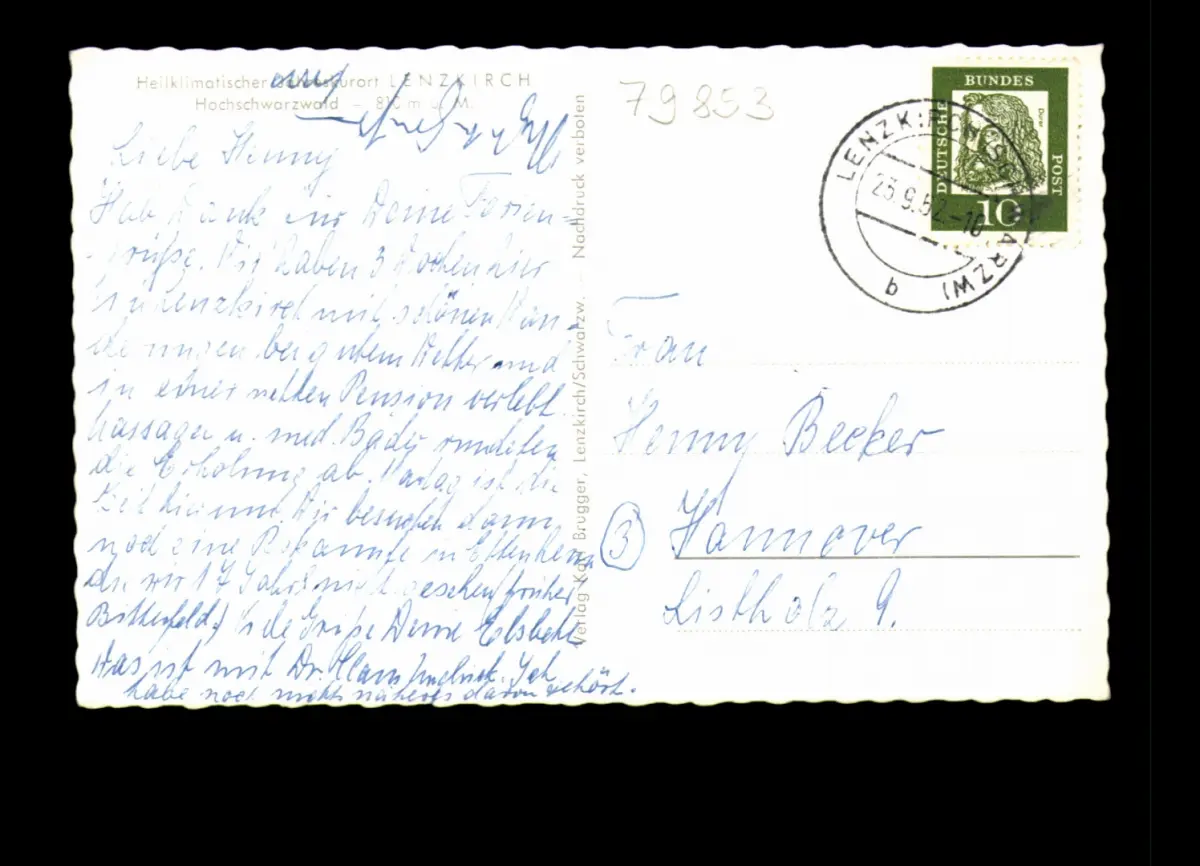 Heilklimatischer Jahreskurort LENZKIRCH
Hochschwarzwald – 810 m ü. M.
Liebe Henny
Hab Dank für Deine Ferien=
grüße. Wir haben 3 Wochen hier
in Lenzkirch mit schönen Wan=
derungen bei gutem Wetter und
in einer netten Pension verlebt.
Massagen u. med. Bäder rundeten
die Erholung ab. ist die
Zeit herum. Wir besuchen dann
noch eine Bekannte in Ettenheim
die wir 17 Jahre nicht gesehen (früher
Bitterfeld.) Viele Grüße Deine Elsbeth
Was ist mit Dr. Ich
habe noch nichts näheres davon gehört.
Verlag Karl Brugger, Lenzkirch/Schwarzw. — Nachdruck verboten
79853
LENZKIRCH (SCHWARZW)
23.9.62.-10
b
DEUTSCHE
BUNDES
POST
Dürer
10
Frau
Henny Becker
3 Hannover
Listholz 9.